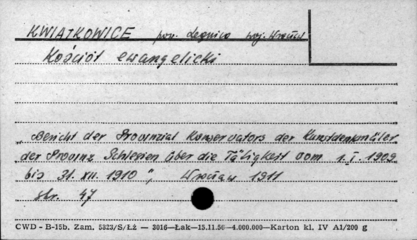 KWIATKOWICE pow. Legnica woj. Wrocław
Kościół ewangelicki
„Bericht der Provinzial Konservators der Kunstdenkmäler
der Provinz Schlesien über die Tätigkeit vom 1.I.1909
bis 31.XII.1910", Wrocław 1911
str. 47
CWD - B-15b. Zam. 5823/S/ŁŻ — 3016—Łak—15.11.56—4.000.000—Karton kl. IV A1/200 g